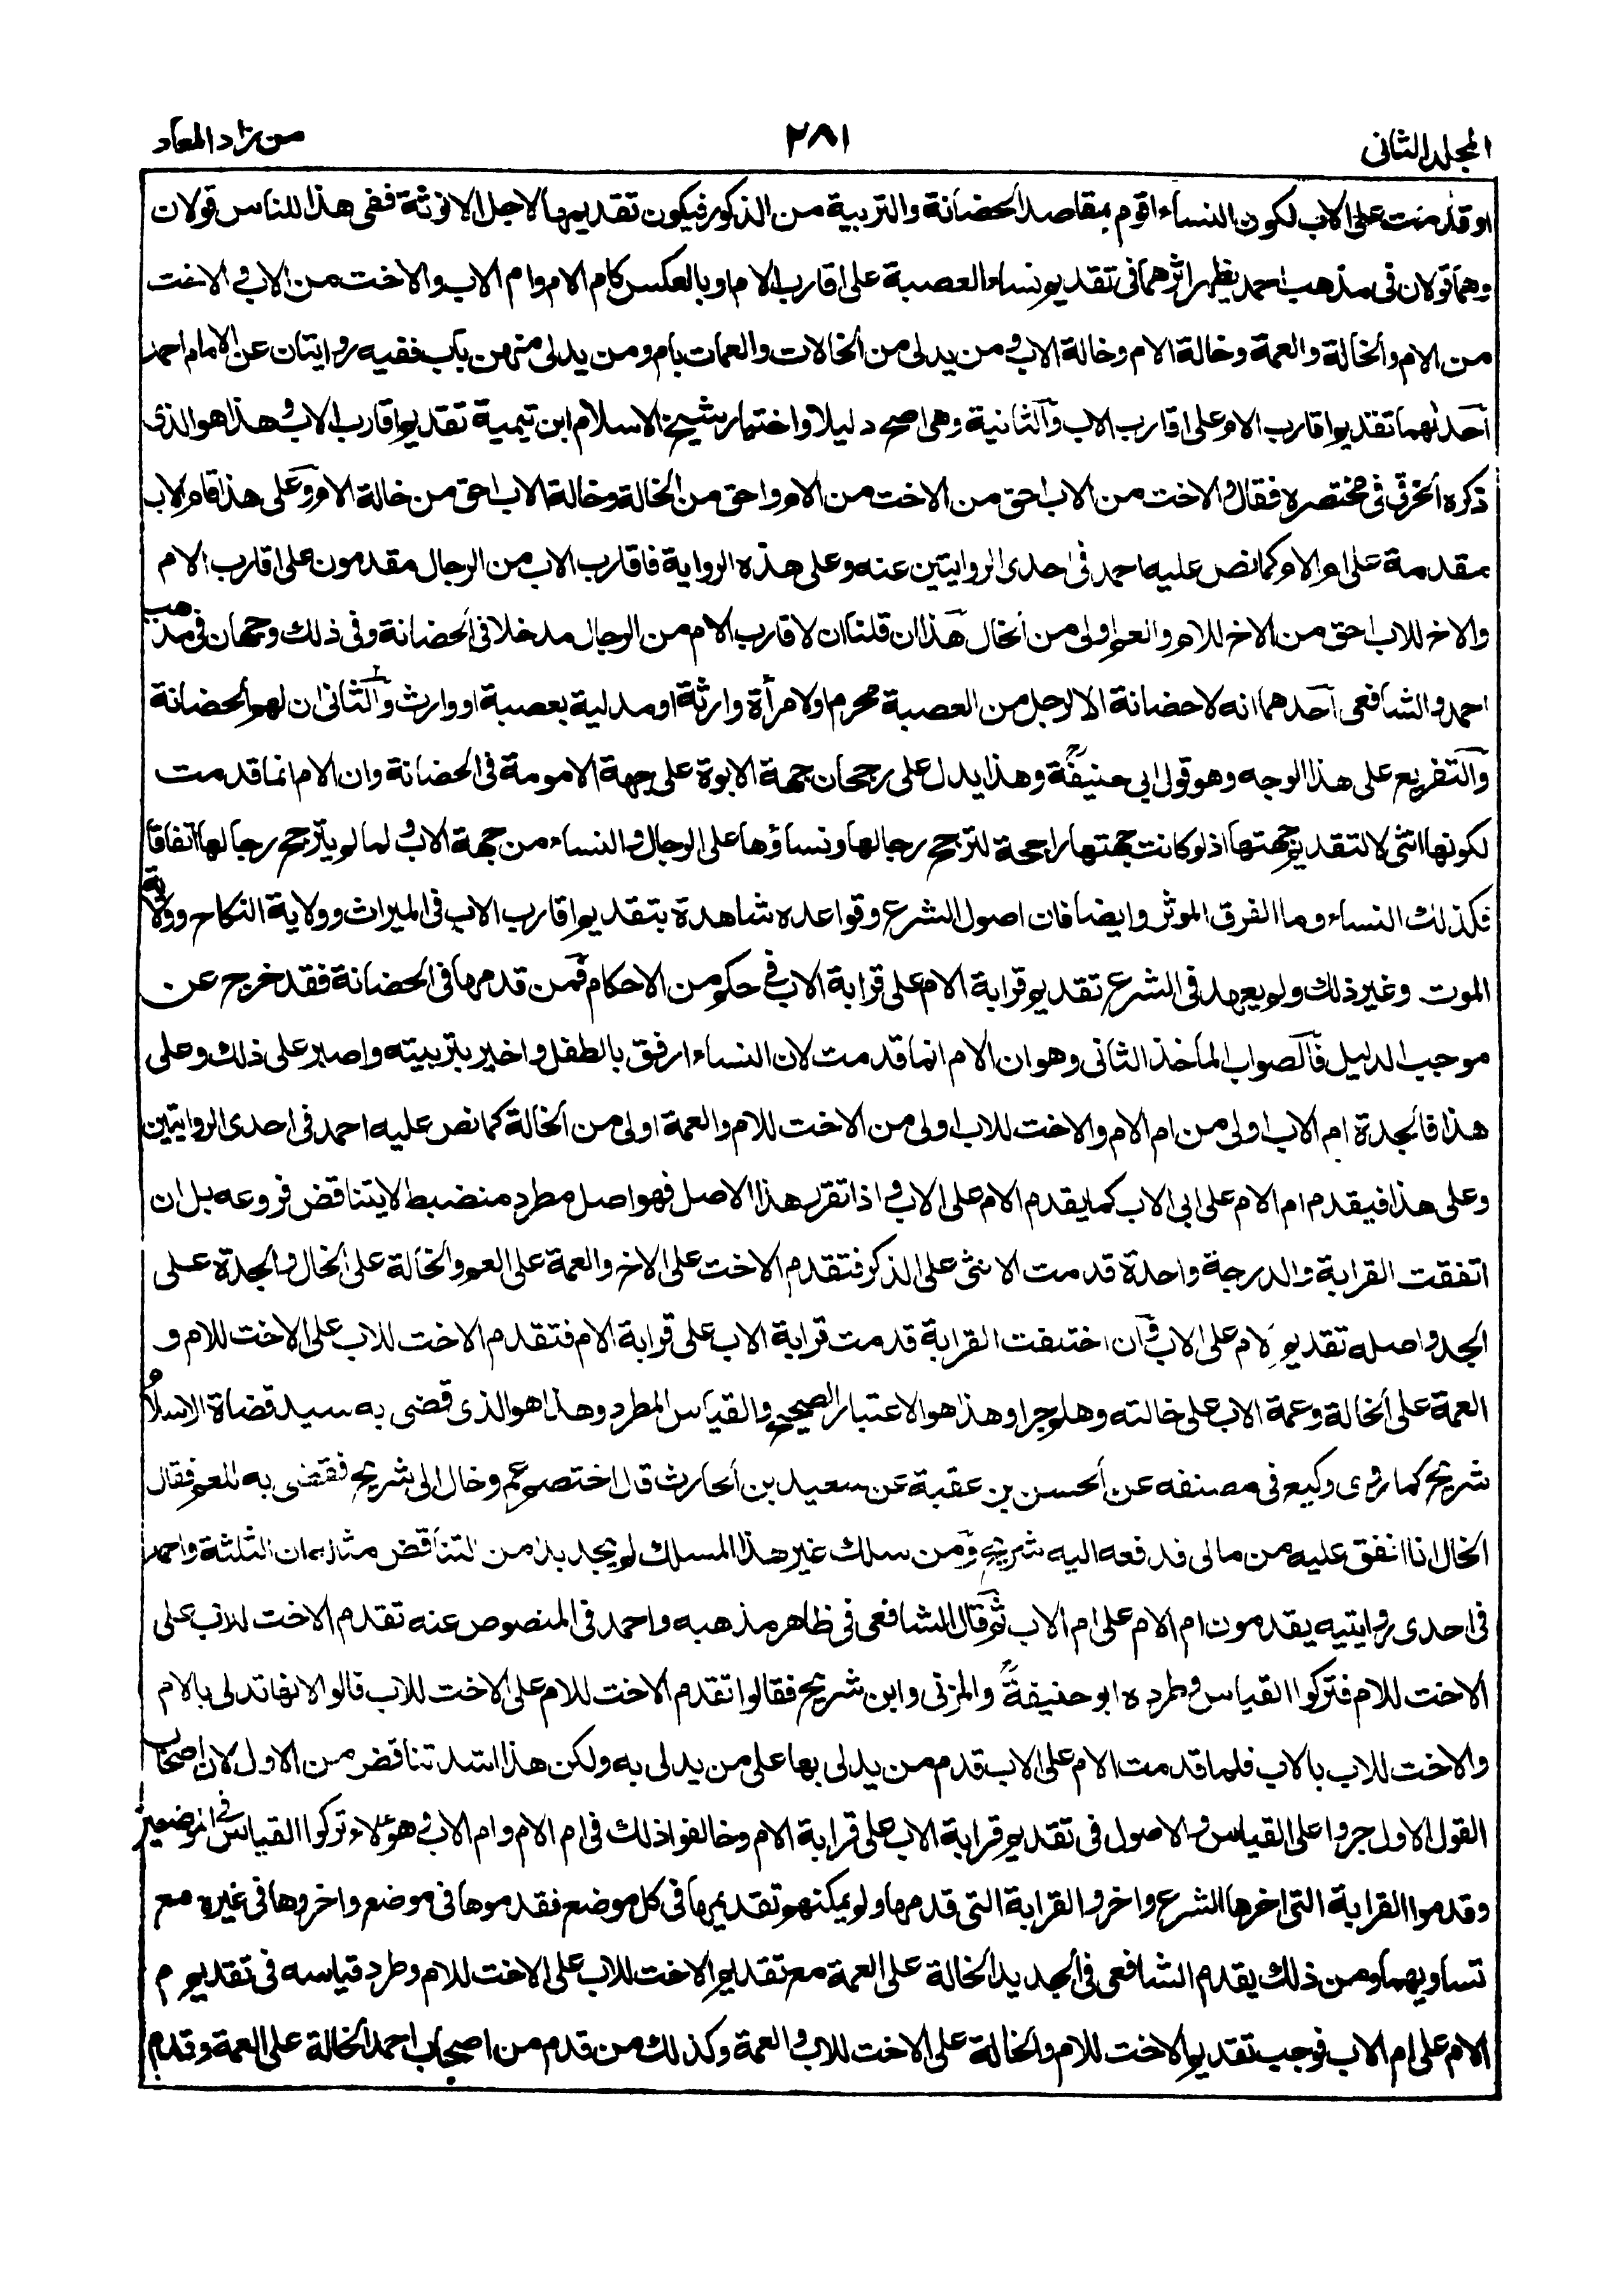 المجلد الثانى
٢٨١
من زاد المعاد
او قدمت على الاب لكون النساء اقوم بمقاصد الحضانة والتربية من الذكور فيكون تقديمها لاجل الانوثة ففى هذا للناس قولان
وهما قولان فى مذهب احمد يظهر اثرهما فى تقديم نساء العصبة على اقارب الام او بالعكس كام الام وام الاب والاخت من الاب والاخت
من الام والخالة والعمة وخالة الام وخالة الاب ومن يدلى من الخالات والعمات بام ومن يدلى منهن باب ففيه روايتان عن الامام احمد
احدٰهما تقديم اقارب الام على اقارب الاب والثانية وهى اصح دليلا واختيار شيخ الاسلام ابن تيمية تقديم اقارب الاب وهذا هو الذى
ذكره الخرقى فى مختصره فقال والاخت من الاب احق من الاخت من الام واحق من الخالة وخالة الاب احق من خالة الام وعلى هذا فام الاب
مقدمة على ام الام كما نص عليه احمد فى احدى الروايتين عنه وعلى هذه الرواية فاقارب الاب من الرجال مقدمون على اقارب الام
والاخ للاب احق من الاخ للام والعم اولى من الخال هذا ان قلنا ان لاقارب الام من الرجال مدخلا فى الحضانة وفى ذلك وجهان فى مذهب
احمد والشافعى احدهما انه لا حضانة الا لرجل من العصبة محرم او لامرأة وارثة او مدلية بعصبة او وارث والثانى ان لهم الحضانة
والتفريع على هذا الوجه وهو قول ابى حنيفة وهذا يدل على رجحان جهة الابوة على جهة الامومة فى الحضانة وان الام انما قدمت
لكونها انثى لا لتقديم جهتها اذ لو كانت جهتها راجحة لترجح رجالها ونساؤها على الرجال والنساء من جهة الاب ولما لم يترجح رجالها اتفاقا
فكذلك النساء وما الفرق الموثر وايضا فان اصول الشرع وقواعده شاهدة بتقديم اقارب الاب فى الميراث وولاية النكاح وولاية
الموت وغير ذلك ولم يعهد فى الشرع تقديم قرابة الام على قرابة الاب فى حكم من الاحكام فمن قدمها فى الحضانة فقد خرج عن
موجب الدليل فالصواب المأخذ الثانى وهو ان الام انما قدمت لان النساء ارفق بالطفل واخير بتربيته واصبر على ذلك وعلى
هذا فالجدة ام الاب اولى من ام الام والاخت للاب اولى من الاخت للام والعمة اولى من الخالة كما نص عليه احمد فى احدى الروايتين
وعلى هذا فيقدم ام الام على ابى الاب كما يقدم الام على الاب واذا تقرر هذا الاصل فهو اصل مطرد منضبط لا يتناقض فروعه بل ان
اتفقت القرابة والدرجة واحدة قدمت الانثى على الذكر فتقدم الاخت على الاخ والعمة على العم والخالة على الخال والجدة على
الجد واصله تقديم الام على الاب وان اختلفت القرابة قدمت قرابة الاب على قرابة الام فتقدم الاخت للاب على الاخت للام و
العمة على الخالة وعمة الاب على خالته وهلم جرا وهذا هو الاعتبار الصحيح والقياس المطرد وهذا هو الذى قضى به سيد قضاة الاسلام
شريح كما روى وكيع فى مصنفه عن الحسن بن عقبة عن سعيد بن الحارث قال اختصم عم وخال الى شريح فقضى به للعم فقال
الخال انا انفق عليه من مالى فدفعه اليه شريح ومن سلك غير هذا المسلك لم يجد بدا من التناقض مثاله ان الثلثة واحمد
فى احدى روايتيه يقدمون ام الام على ام الاب ثم قال الشافعى فى ظاهر مذهبه واحمد فى المنصوص عنه تقدم الاخت للاب على
الاخت للام فتركوا القياس وطرده ابو حنيفة والمزنى وابن شريح فقالوا تقدم الاخت للام على الاخت للاب قالوا لانها تدلى بالام
والاخت للاب بالاب فلما قدمت الام على الاب قدم من يدلى بها على من يدلى به ولكن هذا اشد تناقض من الاول لان اصحاب
القول الاول جروا على القياس والاصول فى تقديم قرابة الاب على قرابة الام وخالفوا ذلك فى ام الام وام الاب وهؤلاء تركوا القياس فى الموضعين
وقدموا القرابة التى اخرها الشرع واخروا القرابة التى قدمها ولم يمكنهم تقديمها فى كل موضع فقدموها فى موضع واخروها فى غيره مع
تساويهما ومن ذلك يقدم الشافعى فى الجديد الخالة على العمة مع تقديم الاخت للاب على الاخت للام وطرد قياسه فى تقديم م
الام على ام الاب فوجب تقديم الاخت للام والخالة على الاخت للاب والعمة وكذلك من قدم من اصحاب احمد الخالة على العمة وقدم